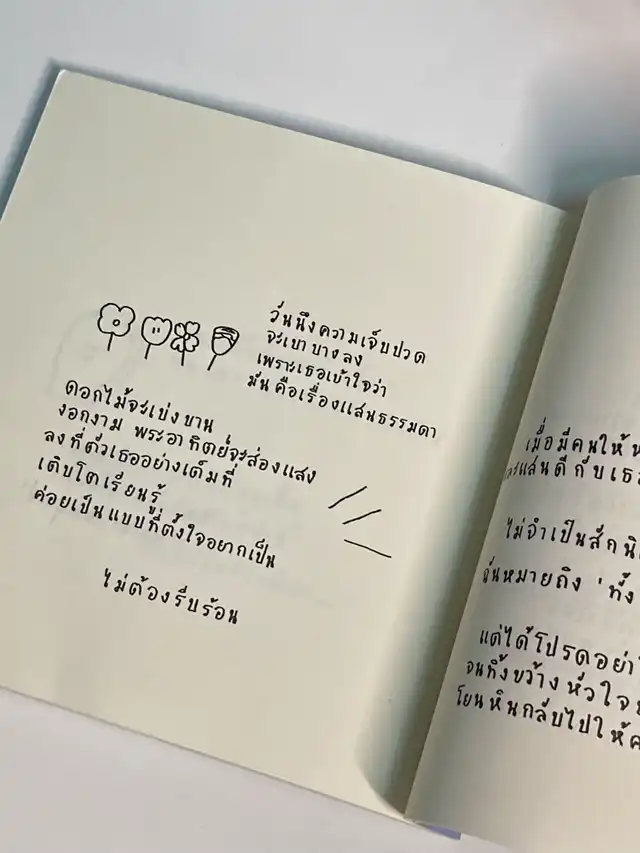 วันนึงความเจ็บปวด
จะเบาบางลง
เพราะเธอเข้าใจว่า
มันคือเรื่องแสนธรรมดา
ดอกไม้จะเบ่งบาน
งอกงาม พระอาทิตย์จะส่องแสง
ลงที่ตัวเธออย่างเต็มที่
เติบโตเรียนรู้
ค่อยเป็นแบบที่ตั้งใจอยากเป็น
ไม่ต้องรีบร้อน
เมื่อมีคนให้
และแสนดีกับเธอ
ไม่จำเป็นสัก
ฉันหมายถึง 'ทั้ง
แต่ได้โปรดอย่า
จนทิ้งขว้างหัวใจ
โยนหินกลับไปให้